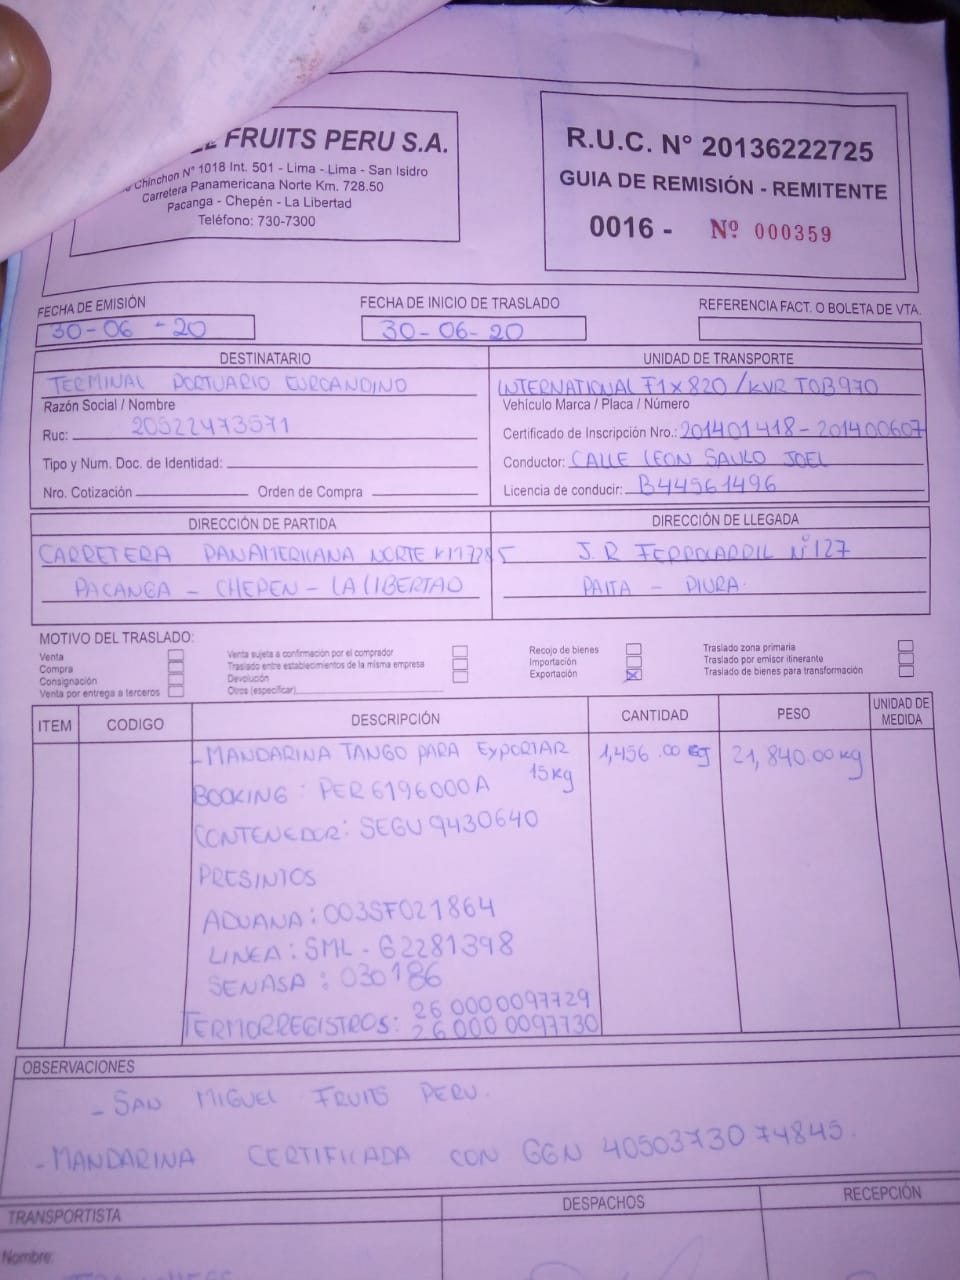 FRUITS PERU S.A.
Chinchon N° 1018 Int. 501 - Lima - Lima - San Isidro
Carretera Panamericana Norte Km. 728.50
Pacanga - Chepén - La Libertad
Teléfono: 730-7300
R.U.C. N° 20136222725
GUIA DE REMISIÓN - REMITENTE
0016 - Nº 000359
FECHA DE EMISIÓN
30-06-20
FECHA DE INICIO DE TRASLADO
30-06-20
REFERENCIA FACT. O BOLETA DE VTA.
DESTINATARIO
TERMINAL PORTUARIO EUROANDINO
Razón Social / Nombre
Ruc: 20522473571
Tipy y Num. Doc. de Identidad:
Nro. Cotización Orden de Compra
UNIDAD DE TRANSPORTE
INTERNATIONAL F1X820 / KVR TOB970
Vehículo Marca / Placa / Número
Certificado de Inscripción Nro.: 201401418-201400607
Conductor: CALLE LEON SAULO JOEL
Licencia de conducir: B44961496
DIRECCIÓN DE PARTIDA
CARRETERA PANAMERICANA NORTE KM7285
PACANGA - CHEPEN - LA LIBERTAD
DIRECCIÓN DE LLEGADA
J.R FERROCARRIL Nº127
PAITA - PIURA
MOTIVO DEL TRASLADO:
Venta
Compra
Consignación
Venta por entrega a terceros
Venta sujeta a confirmación por el comprador
Traslado entre establecimientos de la misma empresa
Devolución
Otros (especificar)
Recojo de bienes
Importación
Exportación X
Traslado zona primaria
Traslado por emisor itinerante
Traslado de bienes para transformación
ITEM CODIGO DESCRIPCIÓN CANTIDAD PESO UNIDAD DE MEDIDA
- MANDARINA TANGO PARA EXPORTAR 1,456.00 21,840.00 kg
15kg
BOOKING: PER6196000A
CONTENEDOR: SEGU9430640
PRESINTOS
ADUANA: 003SF021864
LINEA: SML-62281398
SENASA: 030186
26 0000097729
TERMORREGISTROS: 26 0000097730
OBSERVACIONES
- SAN MIGUEL FRUITS PERU.
- MANDARINA CERTIFICADA CON GGN 4050373074845.
TRANSPORTISTA DESPACHOS RECEPCIÓN
Nombre: